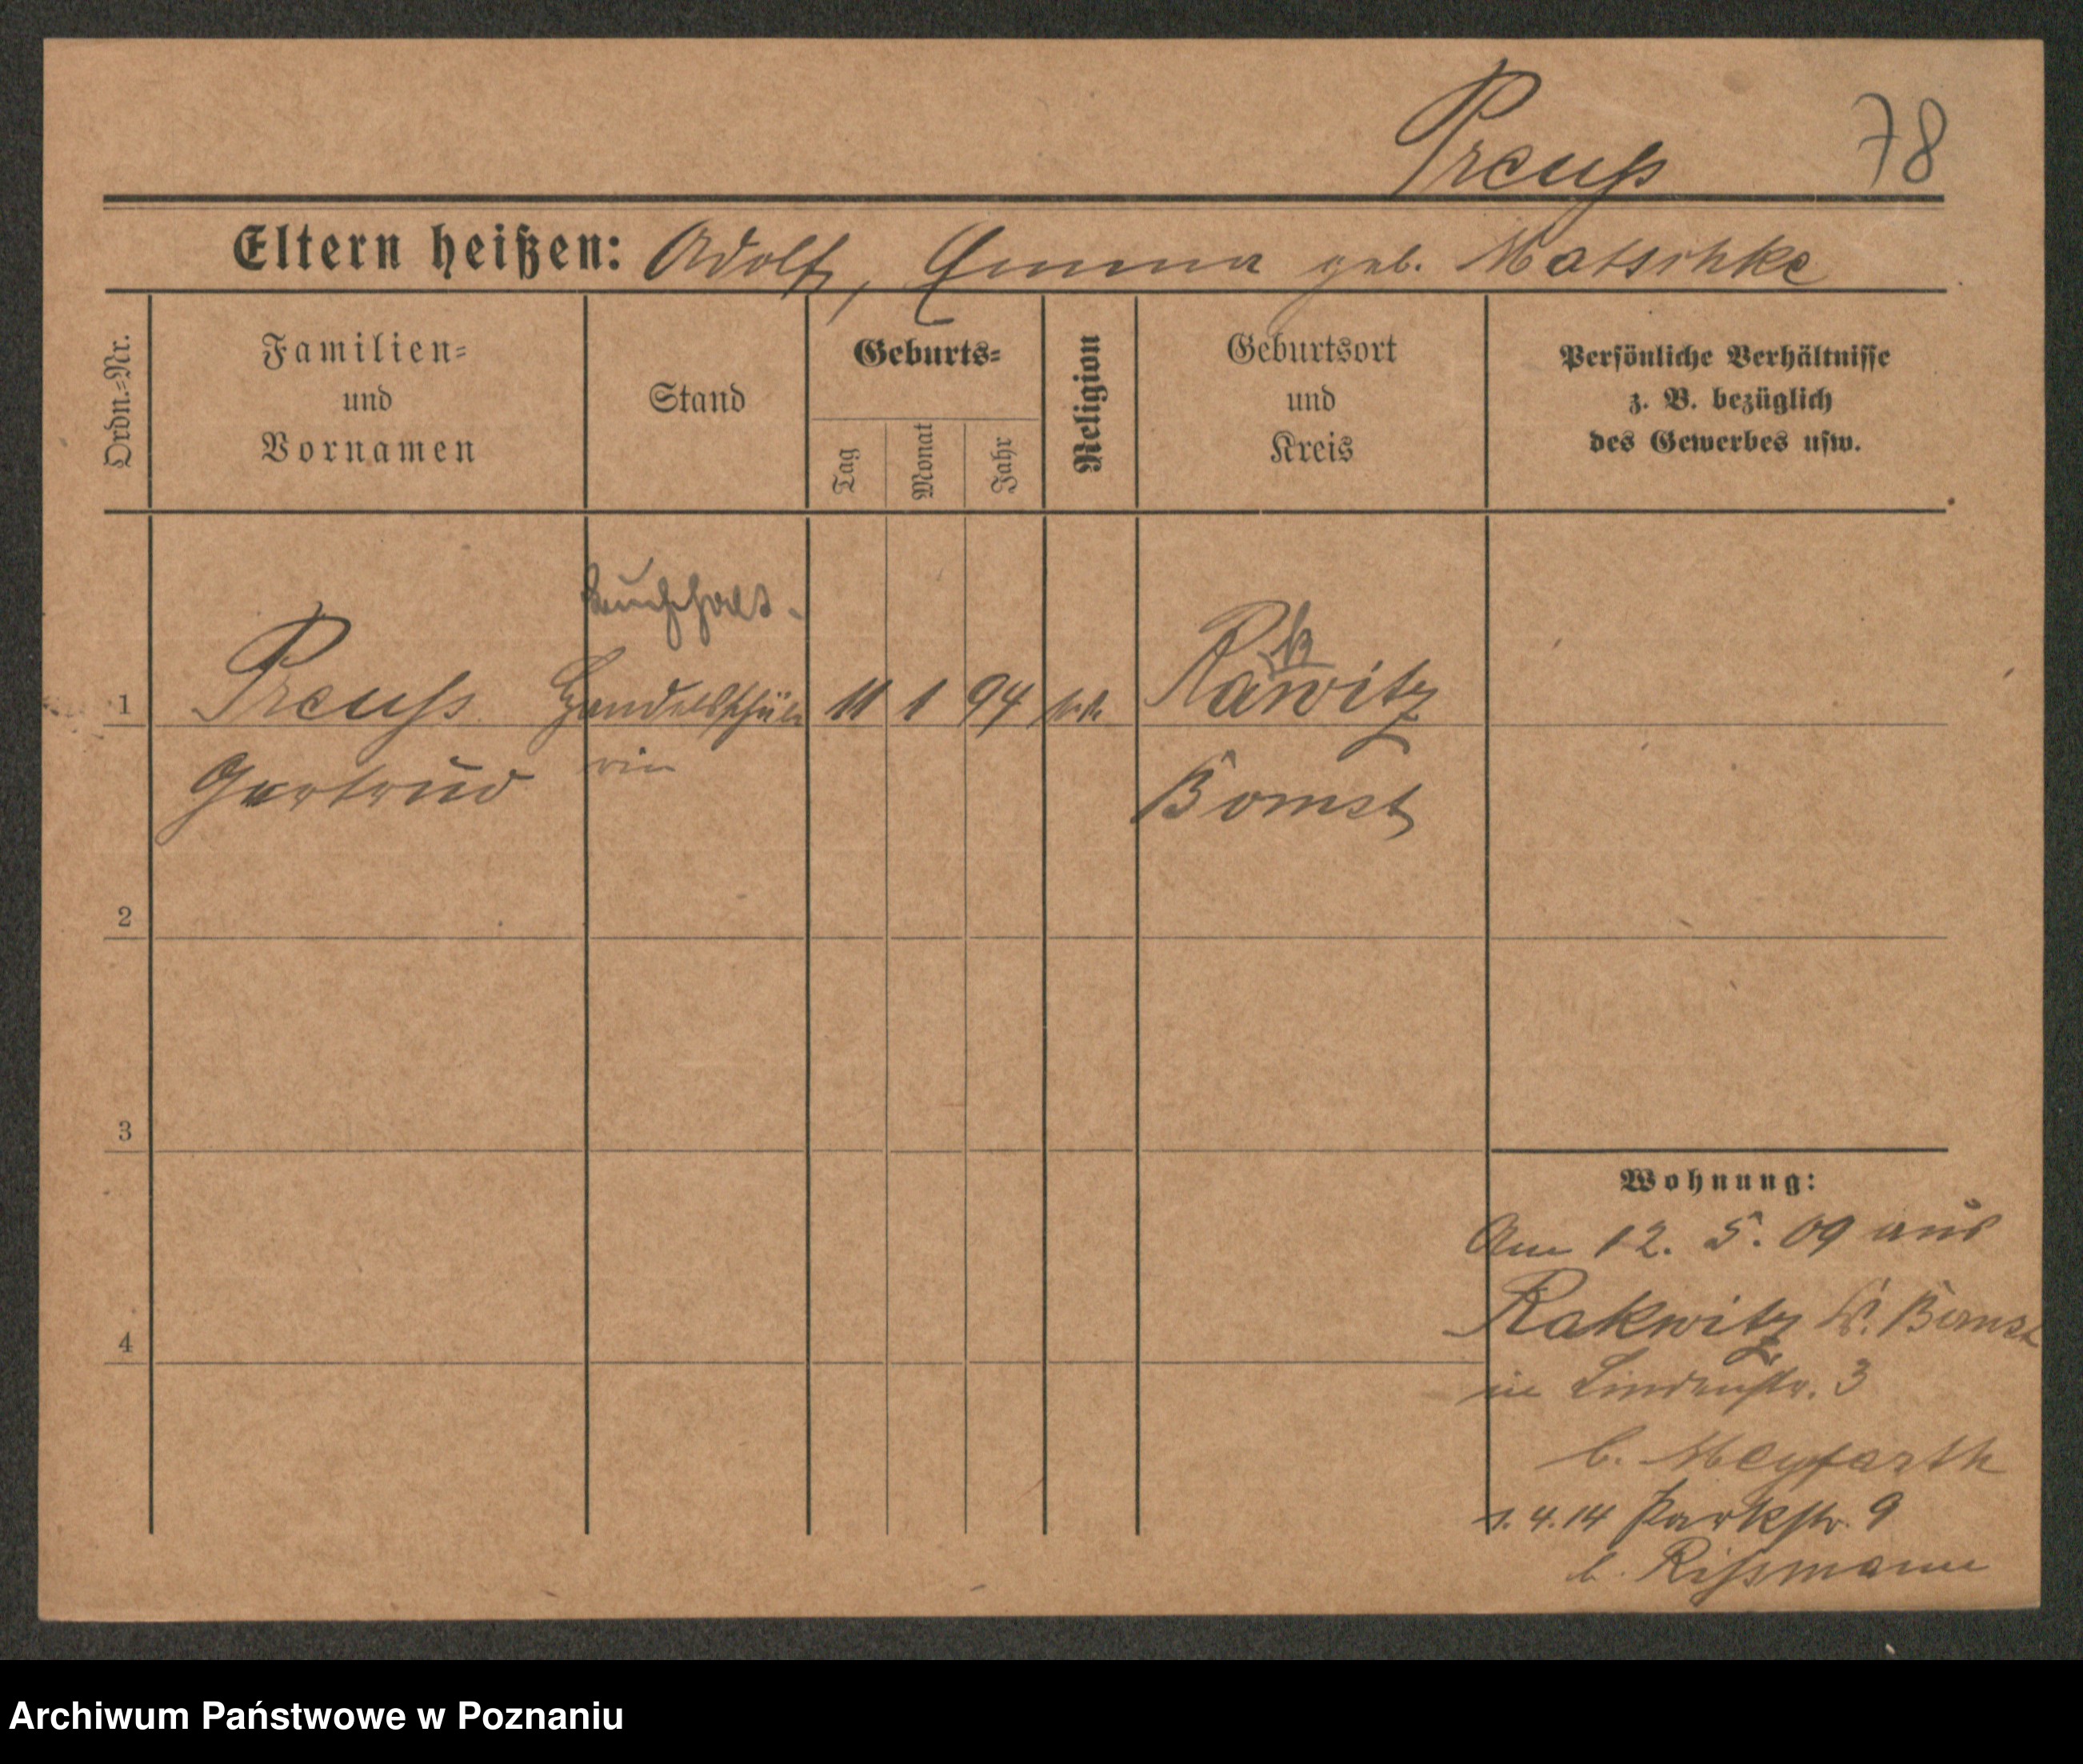 Preuß 78
Eltern heißen: Adolf, Emma geb. Matschke
Ordn.=Nr.
Familien=
und
Vornamen
Stand
Geburts=
Tag
Monat
Jahr
Religion
Geburtsort
und
Kreis
Persönliche Verhältnisse
z. B. bezüglich
des Gewerbes usw.
buchhalt.
1 Preuß Handelsschüle 11 1 94 Rakwitz
Gertrud rin Bomst
2
3
4
Wohnung:
Am 12. 5. 09 aus
Rakwitz Kr. Bomst
in Lindenstr. 3
b. Meyfarth
1. 4. 14 Parkstr. 9
b. Rißmann
Archiwum Państwowe w Poznaniu